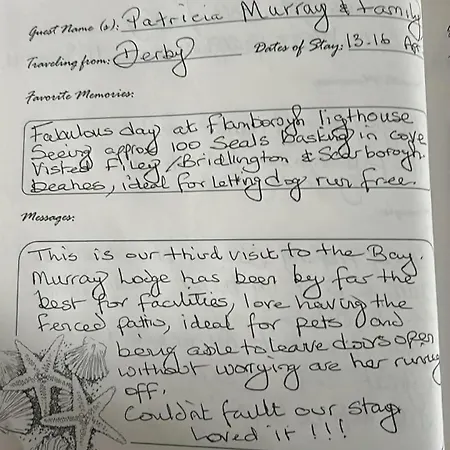 Guest Name (s): Patricia Murray & family
Traveling from: Derby Dates of Stay: 13.16 Apr
Favorite Memories:
Fabulous day at flamborogh ligthouse
Seeing approx 100 Seals basking in cove
Visted Filey / Bridlington & Scarborogh.
beahes, ideal for letting dog run free.
Messages:
This is our third visit to the Bay.
Murray Lodge has been by far the
best for facilities, love having the
fenced patio, ideal for pets and
being able to leave doors open
without worying are her runing
off.
Couldn't fault our stay
Loved it !!!